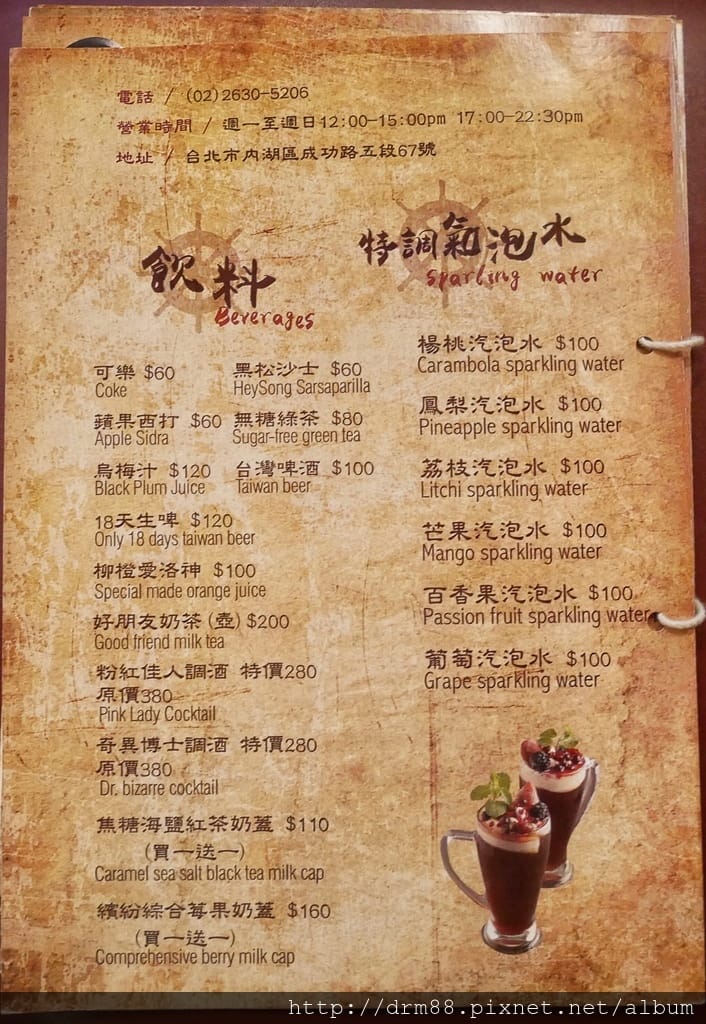 電話 / (02)2630-5206
營業時間 / 週一至週日12:00-15:00pm 17:00-22:30pm
地址 / 台北市內湖區成功路五段67號
飲料
Beverages
可樂 $60 黑松沙士 $60
Coke HeySong Sarsaparilla
蘋果西打 $60 無糖綠茶 $80
Apple Sidra Sugar-free green tea
烏梅汁 $120 台灣啤酒 $100
Black Plum Juice Taiwan beer
18天生啤 $120
Only 18 days taiwan beer
柳橙愛洛神 $100
Special made orange juice
好朋友奶茶 (壺) $200
Good friend milk tea
粉紅佳人調酒 特價280
原價380
Pink Lady Cocktail
奇異博士調酒 特價280
原價380
Dr. bizarre cocktail
焦糖海鹽紅茶奶蓋 $110
(買一送一)
Caramel sea salt black tea milk cap
繽紛綜合莓果奶蓋 $160
(買一送一)
Comprehensive berry milk cap
特調氣泡水
Sparling water
楊桃汽泡水 $100
Carambola sparkling water
鳳梨汽泡水 $100
Pineapple sparkling water
荔枝汽泡水 $100
Litchi sparkling water
芒果汽泡水 $100
Mango sparkling water
百香果汽泡水 $100
Passion fruit sparkling water
葡萄汽泡水 $100
Grape sparkling water
http://drm88.pixnet.net/album